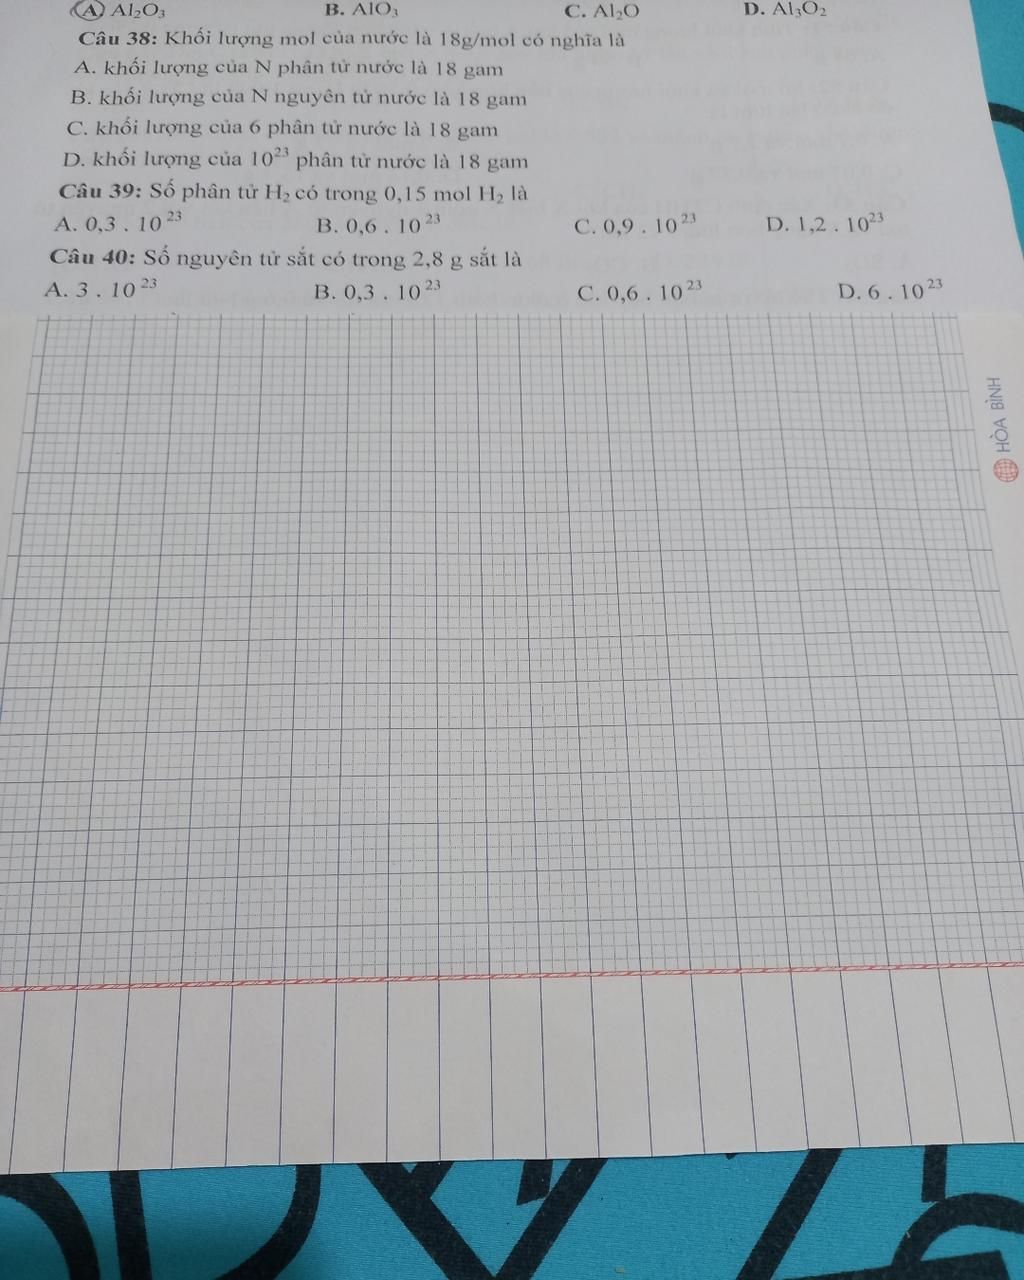 A. Al₂O₃ B. AlO₃ C. Al₂O D. Al₃O₂
Câu 38: Khối lượng mol của nước là 18g/mol có nghĩa là
A. khối lượng của N phân tử nước là 18 gam
B. khối lượng của N nguyên tử nước là 18 gam
C. khối lượng của 6 phân tử nước là 18 gam
D. khối lượng của 10²³ phân tử nước là 18 gam
Câu 39: Số phân tử H₂ có trong 0,15 mol H₂ là
A. 0,3 . 10²³ B. 0,6 . 10²³ C. 0,9 . 10²³ D. 1,2 . 10²³
Câu 40: Số nguyên tử sắt có trong 2,8 g sắt là
A. 3 . 10²³ B. 0,3 . 10²³ C. 0,6 . 10²³ D. 6 . 10²³
HÒA BÌNH